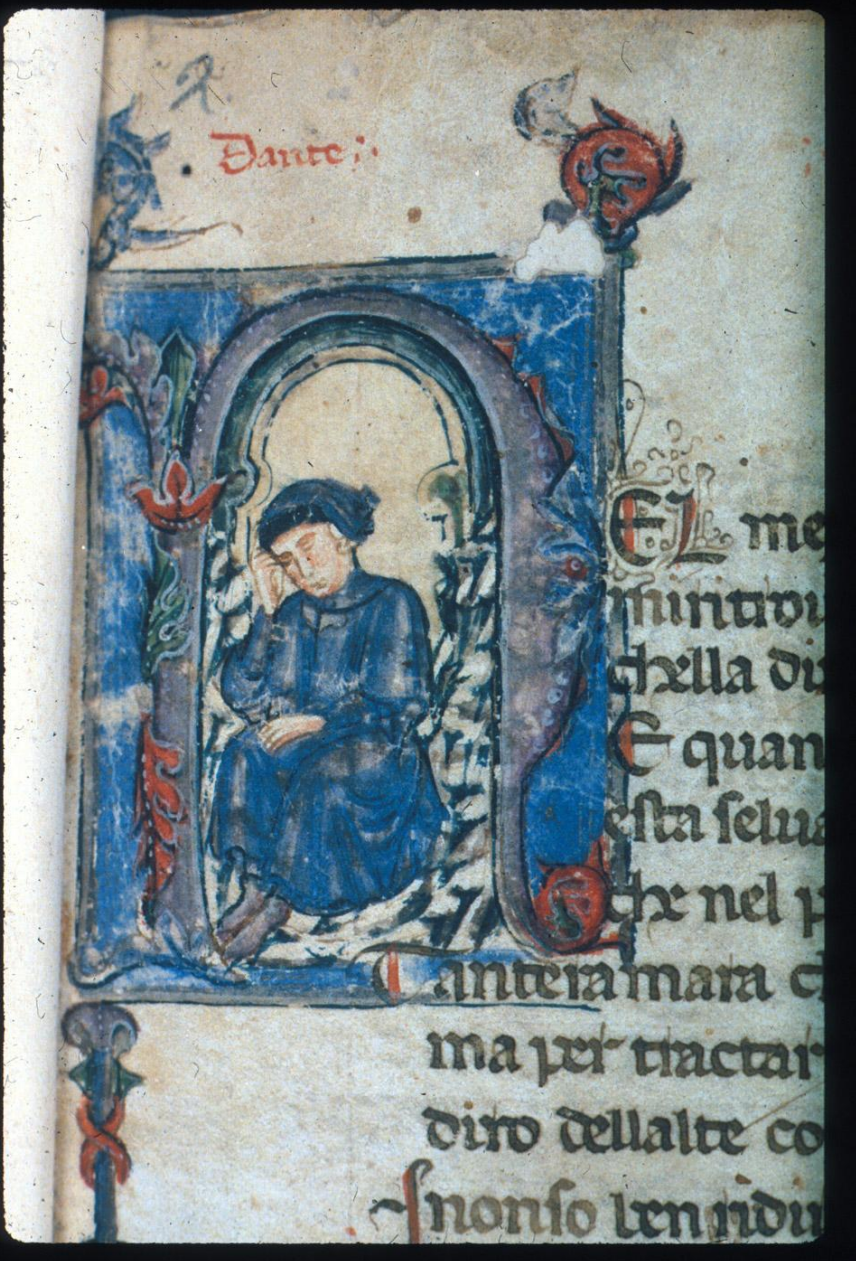 Dante
NEL me
miritrou
chella di
E quan
esta selua
che nel p
Tantera mara ch
ma per tractar
diro dellalte co
Jnonso ben ridu